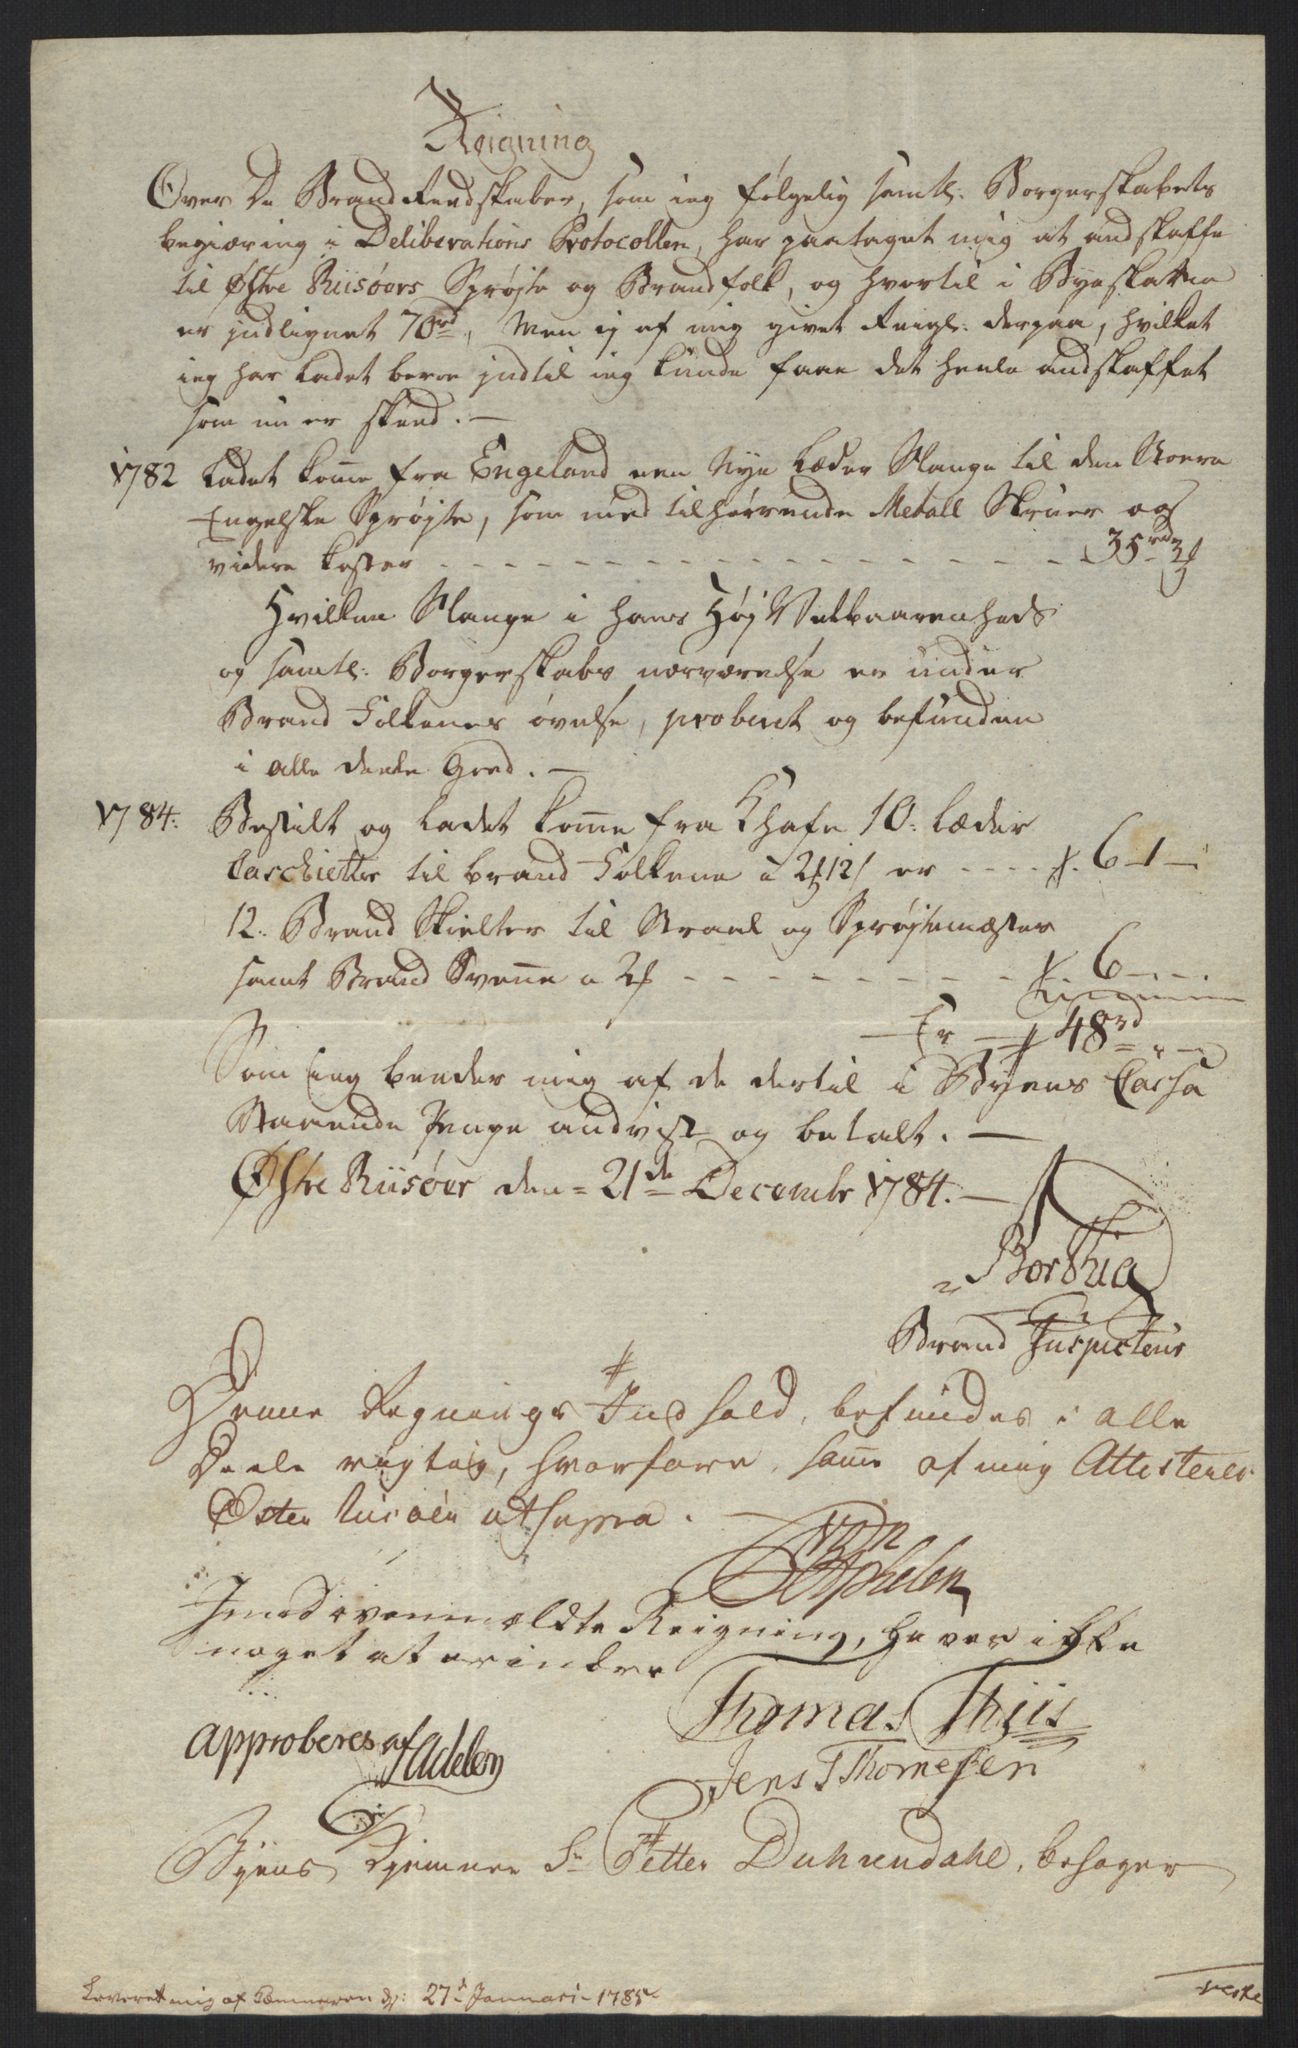 Reigning
Over De Brand Redskaber, som ieg følgelig samtl: Borgerskabets
begiæring i Deliberations Protocollen, har paataget mig at andskaffe
til Østre Riisøers Sprøjte og Brandfolk, og hvortil i Byeskatten
er jndlignet 70rd, Men ej af mig givet Reign: derpaa, hvilket
ieg har ladet beroe jndtil ieg kunde faae det heele andskaffet
som nu er skeed. —
1782 Ladet komme fra Engeland een Nye Læder Slange til den Store
Engelske Sprøjte, som med tilhørende Metall Skruer og
videre koster - - - - - - - - - - - - 35rd 3
Hvilken Slange i hans Høj Velbaarenheds
og samtl: Borgerskabs nærværelse er under
Brand Folkenes øvelse, probert og befunden
i alle deele God. —
1784. Bestilt og ladet komme fra Khafn 10. læder
Caschietter til brand Folkene a 12 er - - - - 6-1-
12. Brand Skielter til Straal og Sprøjtemæster
samt Brand Svenne a 2 - - - - - - - - 6 - - -
Er — 48rd
Som ieg beeder mig af de dertil i Byens Cassa
Staaende Penge andvist og betalt. —
Østre Riisøer den 21de Decembr 1784. —
Brand Inspecteur
Denne Regnings Indhold, befindes i alle
Deele rigtig, hvorfore samme af mig Attesteres
Øster Riisøer ut supra.
Imod ovenmeldte Reigning, haver ikke
noget at erindre
Thomas Thiis
approberes af Adelen
Jens Thomesen
Byens Kiemner Sr Petter Duhrendahl, behager
Leveret mig af Kæmneren d: 27de Januari 1785